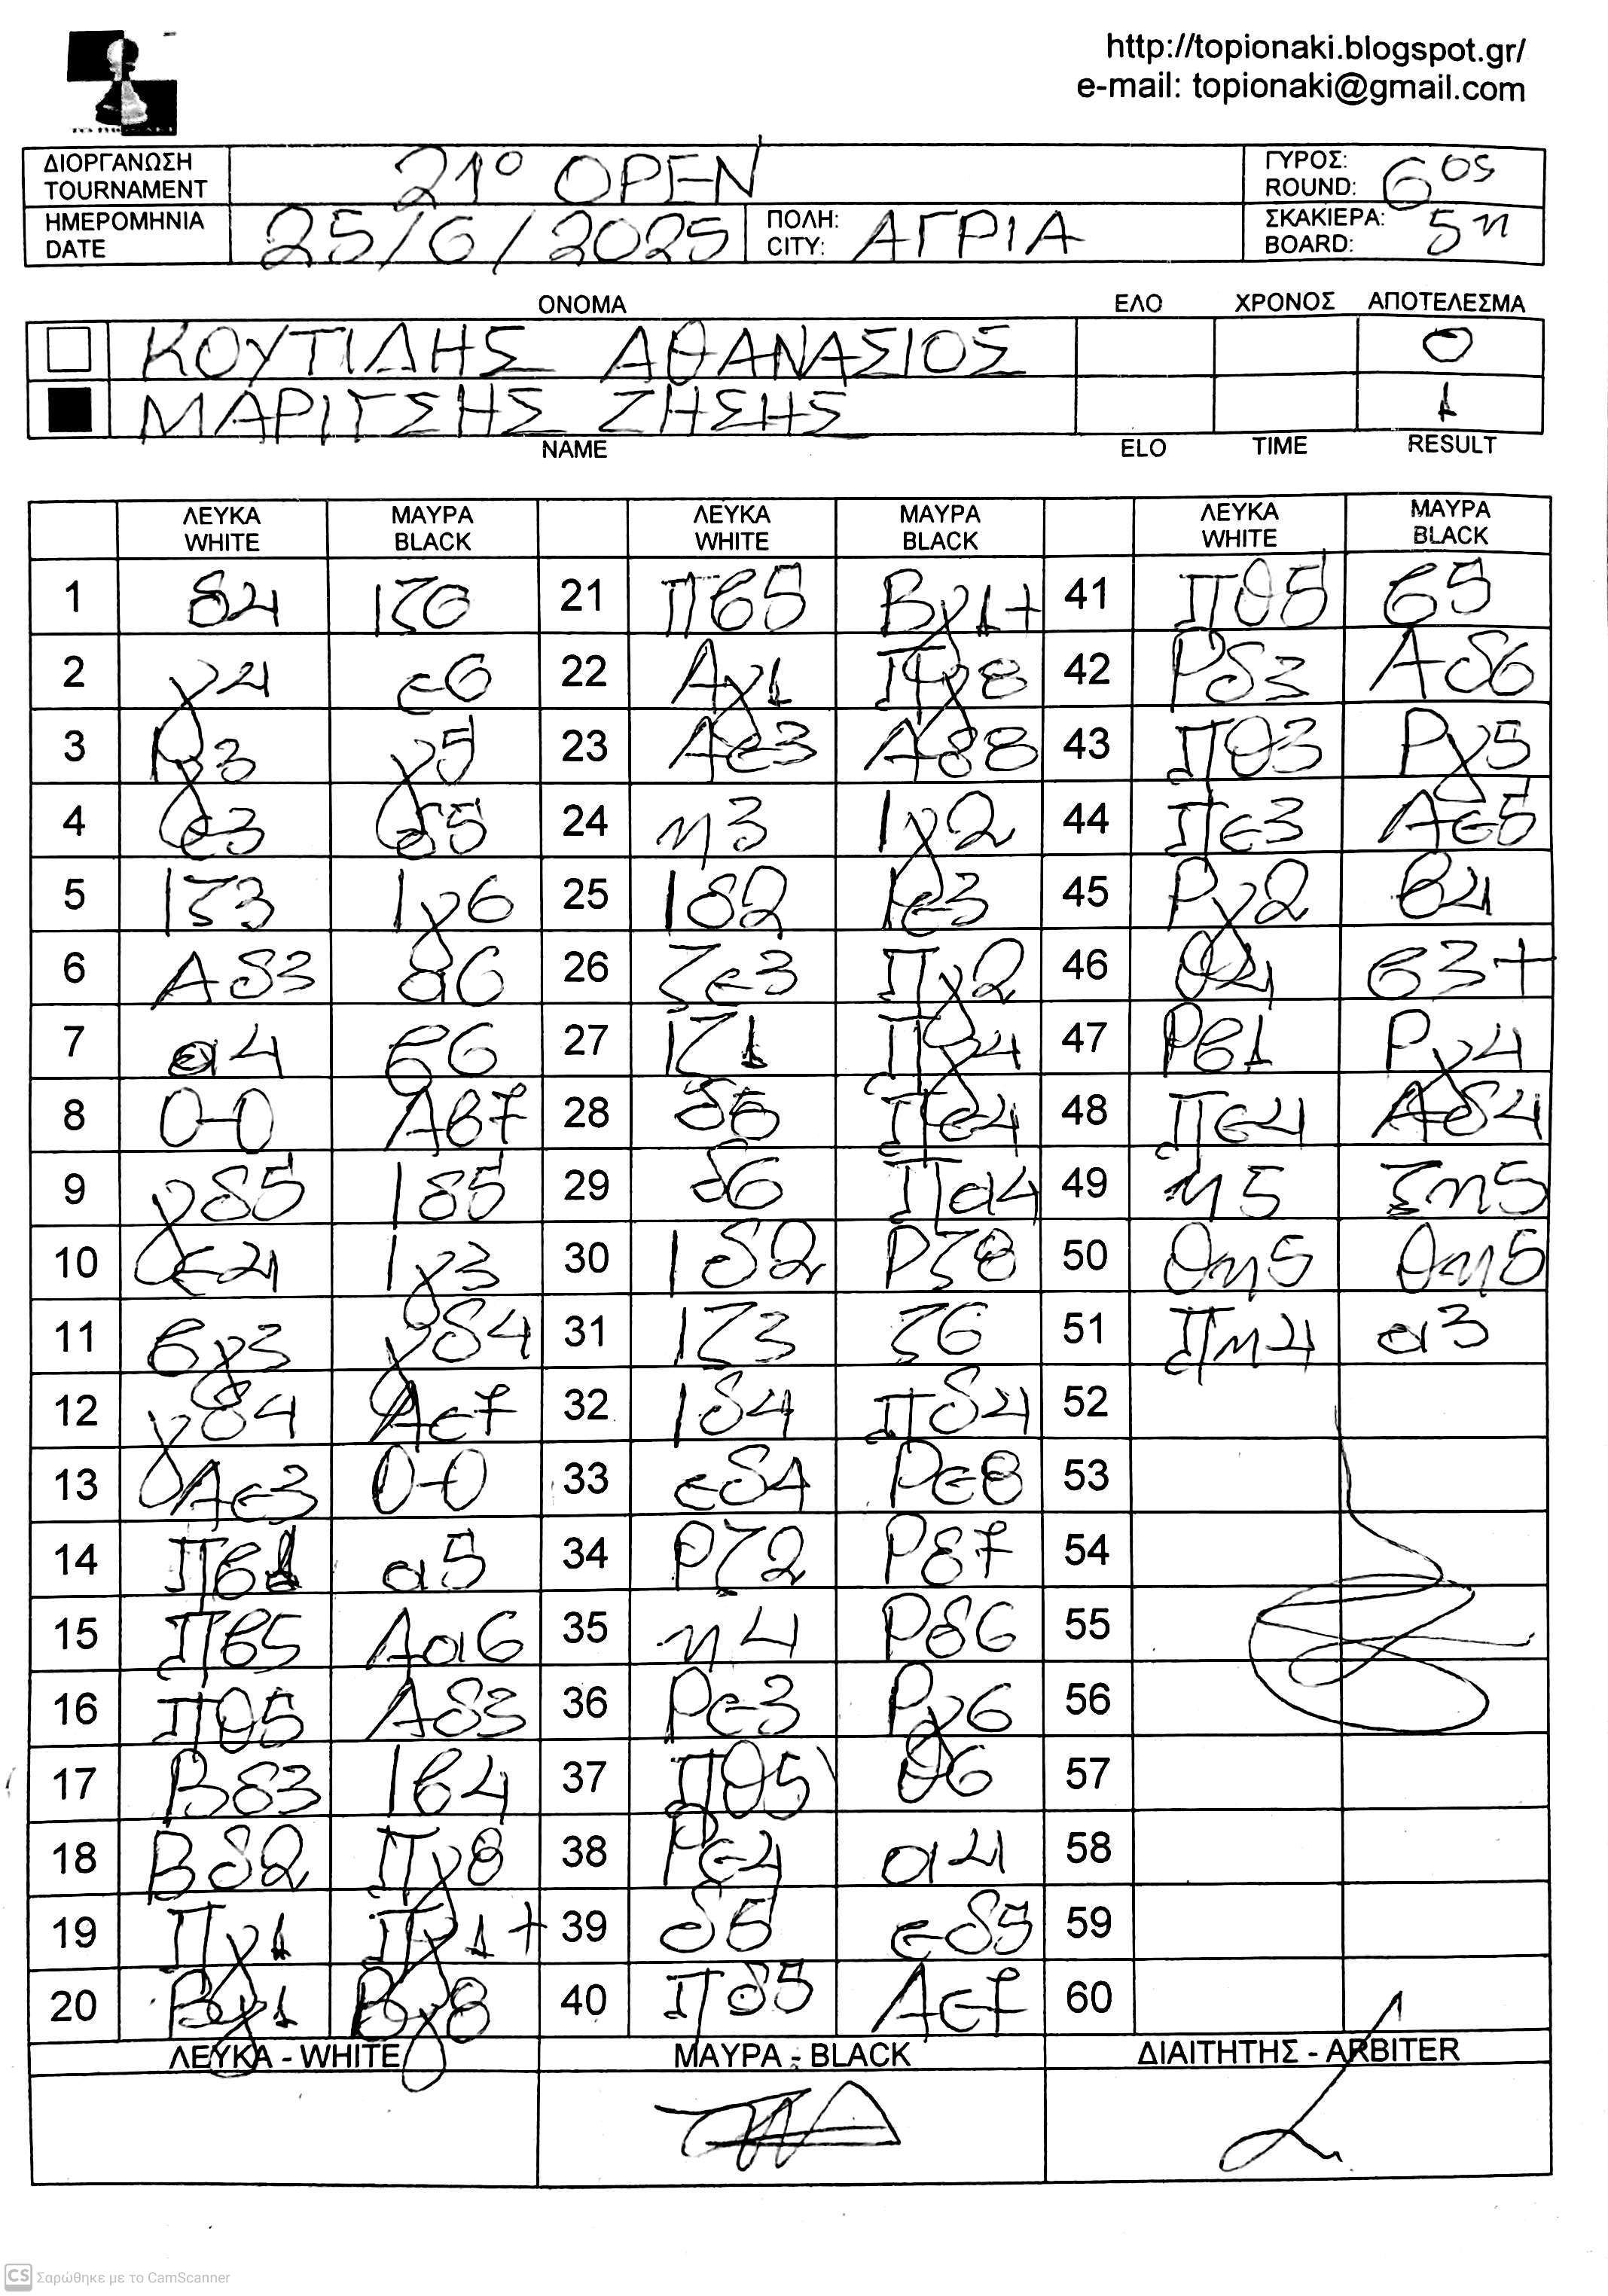 http://topionaki.blogspot.gr/
e-mail: topionaki@gmail.com
ΔΙΟΡΓΑΝΩΣΗ
TOURNAMENT
21° OPEN
ΓΥΡΟΣ:
ROUND:
6ος
ΗΜΕΡΟΜΗΝΙΑ
DATE
25/6/2025
ΠΟΛΗ:
CITY:
ΑΓΡΙΑ
ΣΚΑΚΙΕΡΑ:
BOARD:
5η
ΟΝΟΜΑ ΕΛΟ ΧΡΟΝΟΣ ΑΠΟΤΕΛΕΣΜΑ
ΚΟΥΤΙΔΗΣ ΑΘΑΝΑΣΙΟΣ 0
ΜΑΡΙΤΣΗΣ ΖΗΣΗΣ 1
NAME ELO TIME RESULT
ΛΕΥΚΑ ΜΑΥΡΑ ΛΕΥΚΑ ΜΑΥΡΑ ΛΕΥΚΑ ΜΑΥΡΑ
WHITE BLACK WHITE BLACK WHITE BLACK
1 δ4 Ιζ6 21 Πβ5 Βγ1+ 41 Πθ5 β5
2 γ4 ε6 22 Αγ1 Πγ8 42 Ρδ3 Αδ6
3 β3 γ5 23 Αε3 Αδ8 43 Πθ3 Ργ5
4 ε3 δ5 24 η3 Ιγ2 44 Πε3 Αε5
5 Ιζ3 Ιγ6 25 Ιδ2 Ιε3 45 Ργ2 β4
6 Αδ3 α6 26 ζε3 Πγ2 46 θ4 β3+
7 α4 β6 27 Ιζ1 Πγ4 47 Ρβ1 Ργ4
8 0-0 Αβ7 28 δ5 Πε4 48 Πε4 Αδ4
9 γδ5 Ιδ5 29 δ6 Πα4 49 η5 ζη5
10 ε4 Ιγ3 30 Ιδ2 Ρζ8 50 θη5 θη5
11 βγ3 γδ4 31 Ιζ3 ζ6 51 Πη4 α3
12 γδ4 Αε7 32 Ιδ4 Πδ4 52
13 Αε3 0-0 33 εδ4 Ρε8 53
14 Πβ1 α5 34 Ρζ2 Ρδ7 54
15 Πβ5 Αα6 35 η4 Ρδ6 55
16 Πθ5 Αδ3 36 Ρε3 Ργ6 56
17 Βδ3 Ιβ4 37 Πθ5 θ6 57
18 Βδ2 Πγ8 38 Ρε4 α4 58
19 Πγ1 Πγ1+ 39 δ5 εδ5 59
20 Βγ1 Βγ8 40 Πδ5 Αε7 60
ΛΕΥΚΑ - WHITE ΜΑΥΡΑ - BLACK ΔΙΑΙΤΗΤΗΣ - ARBITER
CS Σαρώθηκε με το CamScanner